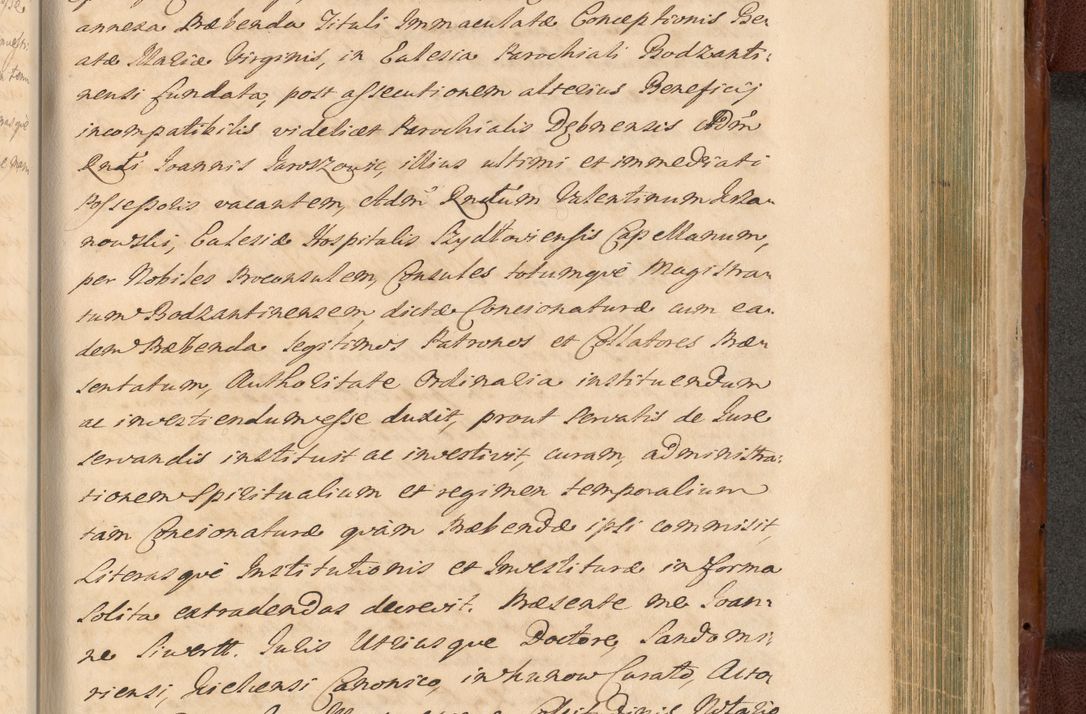 annexa Præbenda Tituli Immaculatæ Conceptionis Be-
atæ Mariæ Virginis, in Ecclesia Parochiali Bodzanti-
nensi fundata, post assecutionem alterius Beneficij
incompatibilis videlicet Parochialis Dębnensis Adm̃
Rndi Joannis Jaroszowic, illius ultimi et immediati
Possessoris vacantem, Adm̃ Rndum Valentinum Krza-
nowski, Ecclesiæ Hospitalis Szydłoviensis Capellanum,
per Nobiles Proconsulem, Consules totumquè Magistra-
tum Bodzantinensem dictæ Concionaturæ cum ea-
dem Præbenda legitimos Patronos et Collatores Præ-
sentatum, Authoritate Ordinaria instituendum
ac investiendum esse duxit, prout servatis de Jure
servandis instituit ac investivit, curam, administra-
tionem Spiritualium et regimen temporalium
tàm Concionaturæ quàm Præbendæ ipsi commisit,
Literasquè Institutionis et Investituræ in forma
solita extradendas decrevit. Præsente me Joan-
ne Siwertt. Juris Utriusque Doctore, Sandomi-
riensi, Kielcensi Canonico, in Curato, Acto-
Notario